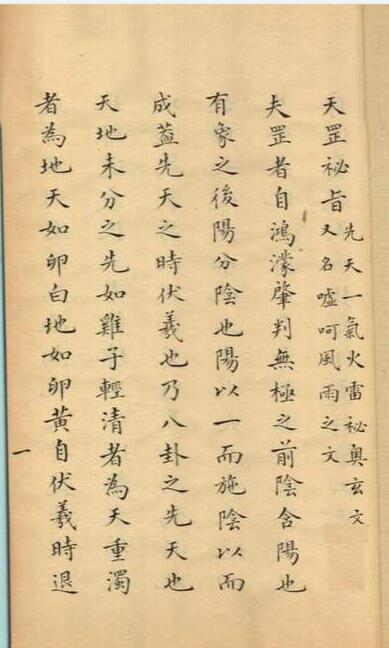 天罡祕旨
先天一氣火雷祕奧玄文
又名噓呵風雨之文
夫罡者自鴻濛肇判無極之前陰含陽也
有象之後陽分陰也陽以一而施陰以而
成蓋先天之時伏羲也乃八卦之先天也
天地未分之先如雞子輕清者為天重濁
者為地天如卵白地如卵黃自伏羲時退
一